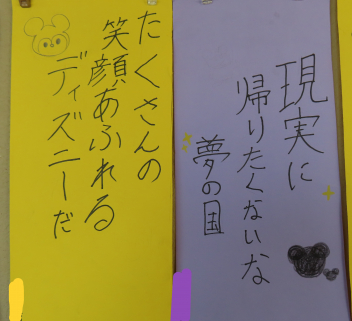 たくさんの
笑顔あふれる
ディズニーだ
現実に
帰りたくないな
夢の国